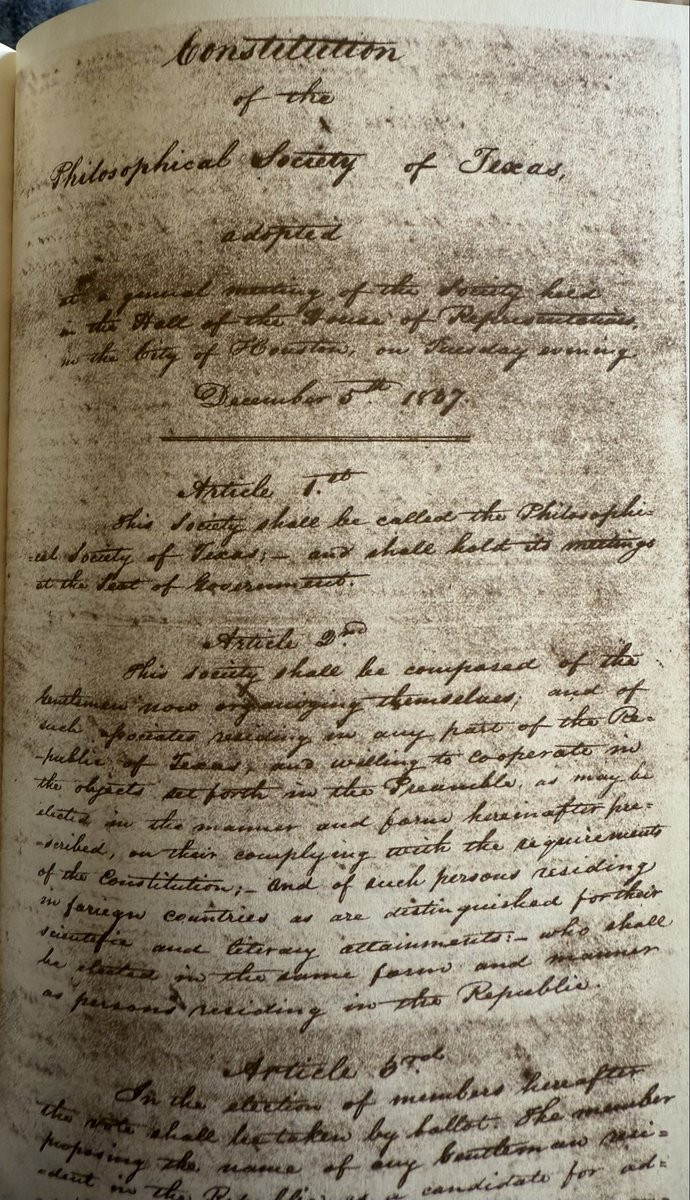 Constitution
of the
Philosophical Society of Texas,
adopted
at a general meeting of the Society held
in the Hall of the House of Representatives,
in the City of Houston, on Tuesday evening
December 5th 1837.
Article 1.st
This Society shall be called the Philosophi-
-cal Society of Texas;- and shall hold its meetings
at the Seat of Government.
Article 2nd
This society shall be composed of the
Gentlemen now organizing themselves, and of
such associates residing in any part of the Re-
-public of Texas, and willing to cooperate in
the objects set forth in the Preamble, as may be
elected in the manner and form hereinafter pre-
-scribed, on their complying with the requirements
of the Constitution;- and of such persons residing
in foriegn countries as are distinguished for their
scientific and literary attainments:- who shall
be elected in the same form and manner
as persons residing in the Republic.
Article 3rd
In the election of members hereafter
the vote shall be taken by ballot. The member
proposing the name of any Gentleman resi-
-dent in the Republic as a candidate for ad-